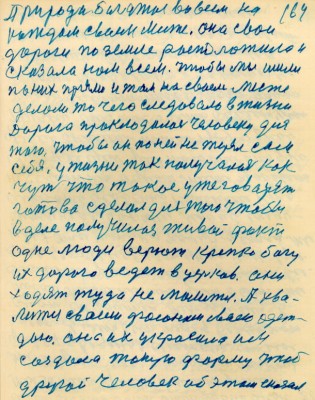 164
Природа богатая во всем на
каждом своем месте, она свои
дороги по земле расположила и
сказала нам всем. Чтобы мы шли
по них прямо и там на своем месте
делали то чего следовало в жизни
Дорога прокладалась человеку для
того, чтобы он по ней не терял сам
себя, у жизни так получалось как
чуть что такое уже говорят
готово сделал для того чтобы
в деле получился живой факт
одне люди верют крепко богу
их дорога ведет в церков, они
ходят туда не молится. А хва-
лится своею одеж-
дою, она их украсила им
создала такую форму чтоб
другой человек об этом сказал